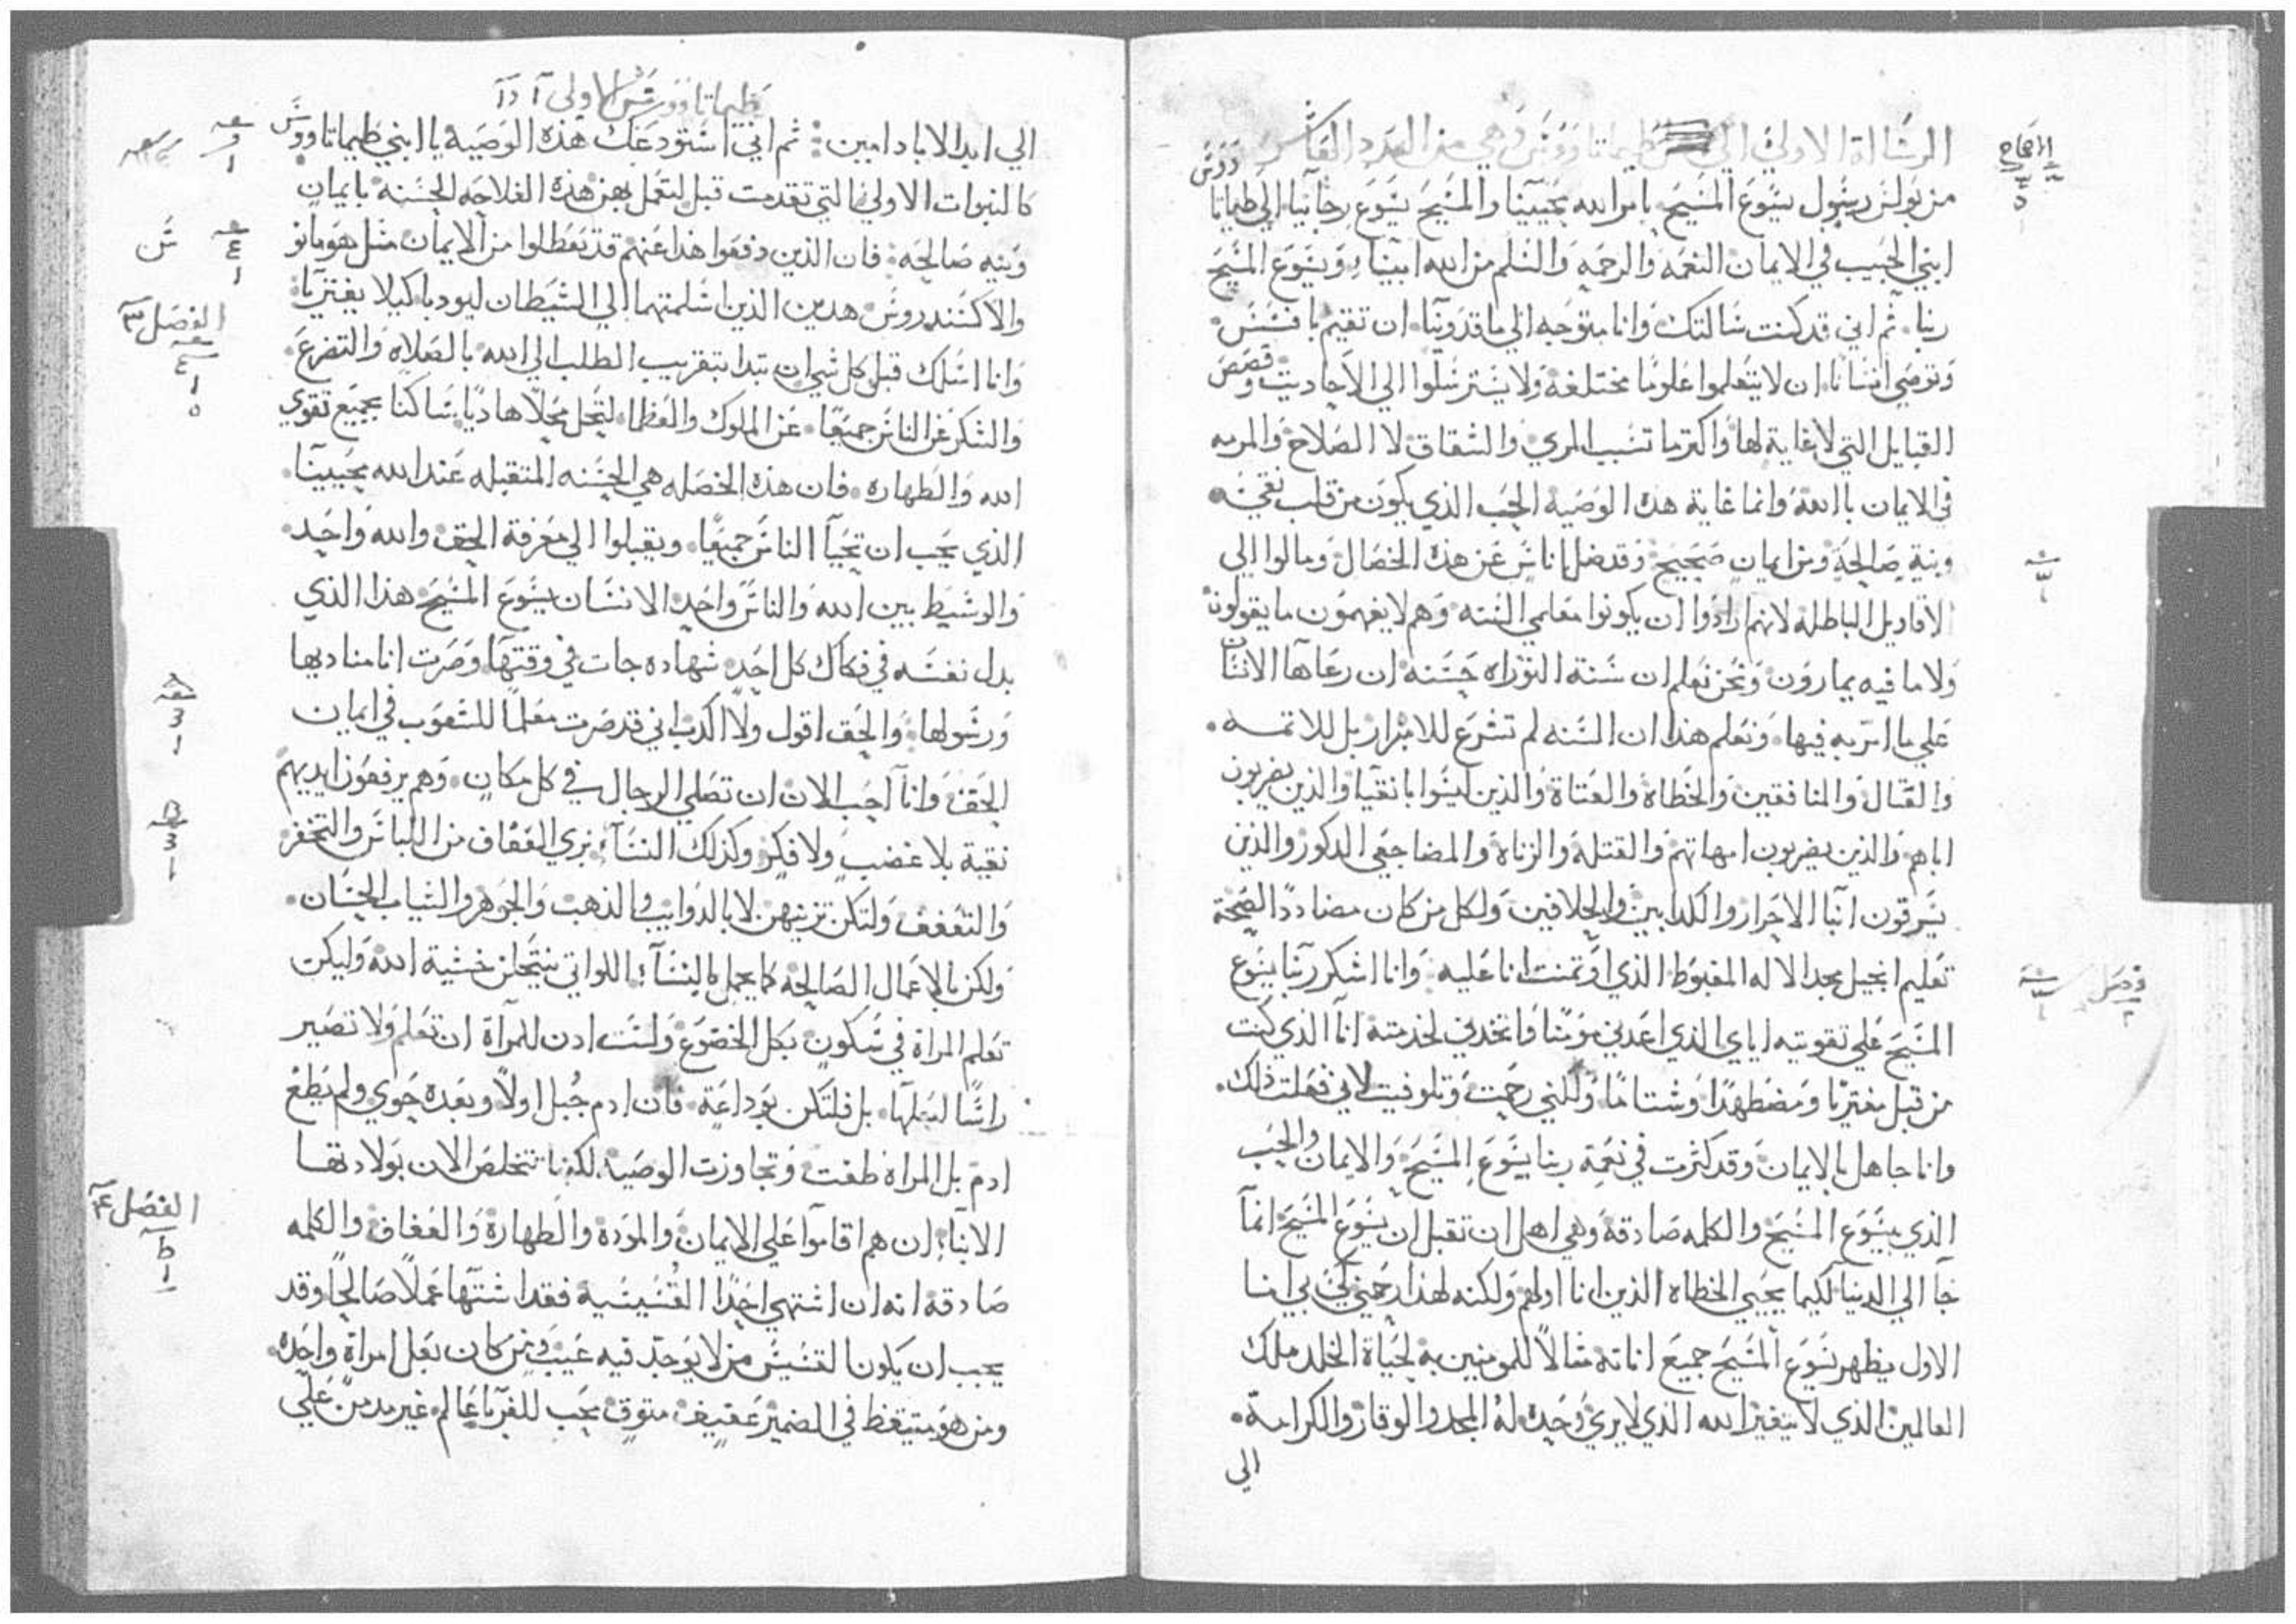 الرسالة الاولي الي طيماتاووس وهي من العدد العاشر
الاصحاح
من بولس رسول يسوع المسيح بامر الله محيينا والمسيح يسوع رجانيا الي طيماتا
ووس
ابني الحبيب في الايمان النعمه والرحمه والسلم من الله ابينا ويسوع المسيح
ربنا ثم اني قد كنت سالتك وانا متوجه الي ماقدونيا ان تقيم بافسس
وتوصي انسانا ان لا يتعلموا علوما مختلفة ولا يسترسلوا الي الاحاديت وقصص
القبايل التي لا غاية لها واكتر ما تسبب المري والشقاق لا الصلاح والمربه
في الايمان بالله وانما غاية هده الوصية الحب الذي يكون من قلب نقي
وبنية صالحة ومن ايمان صحيح وقد ضل اناس عن هذه الخصال ومالوا الي
الاقاويل الباطلة لانهم ارادوا ان يكونوا معلمي السنه وهم لا يفهمون ما يقولون
ولا ما فيه يمارون ونحن نعلم ان سنة التوراه حسنه ان رعاها الانسان
علي ما امر به فيها ونعلم هذا ان السنه لم تشرع للابرار بل للاتمه
والقتال والمنافقين والخطاه والعتاة والذين ليسوا بانقيا والذين يضربون
اباهم والذين يضربون امهاتهم والقتلة والزناة والمضاجعي الدكور والذين
يسرقون ابنا الاحرار والكدابين والحلافين ولكل من كان مضاددا لصحة
تعليم انجيل مجد الاله المغبوط الذي اوتمنت انا عليه وانا اشكر ربنا يسوع
فصل
المسيح علي تقويته اياي الذي اعدني مومنا واتخدني لخدمته انا الذي كنت
من قبل مفتريا ومضطهدا وشتاما ولكني رحمت وتلوفيت لاني فعلت ذلك
وانا جاهل بالايمان وقد كثرت في نعمة ربنا يسوع المسيح والايمان والحب
الذي بيسوع المسيح والكلمه صادقة وهي اهل ان تقبل ان يسوع المسيح انما
جا الي الدنيا لكيما يحيي الخطاه الذين انا اولهم ولكنه لهذا رحمني لكي بي انا
الاول يظهر يسوع المسيح جميع اناته مثالا للمومنين به لحياة الخلد ملك
العالمين الذي لا يتغير الله الذي لا يري وحده له المجد والوقار والكرامة
الي
طيماتاووس الاولي
الي ابد الاباد امين ثم اني استودعك هذه الوصية يا ابني طيماتاووس
كالنبوات الاولي التي تقدمت قبل لتعمل بهن هذه الفلاحه الحسنه بايمان
ونيه صالحه فان الذين دفعوا هذا عنهم قد تعطلوا من الايمان مثل هومانو
والاكسندروس هدين الذين اسلمتهما الي الشيطان ليودبا كيلا يفتريا
الفصل ٣
وانا اسلك قبل كل شي ان تبدا بتقريب الطلب الي الله بالصلاه والتضرع
والشكر عن الناس جميعا عن الملوك والعظما لتحل محلا هاديا ساكنا بجميع تقوي
الله والطهاره فان هذه الخصله هي الحسنه المتقبله عند الله محيينا
الذي يحب ان تحيا الناس جميعا ويقبلوا الي معرفة الحق والله واحد
والوسيط بين الله والناس واحد الانسان يسوع المسيح هذا الذي
بدل نفسه في فكاك كل احد شهاده جات في وقتها وصرت انا مناديها
ورسولها والحق اقول ولا اكدب اني قد صرت معلما للشعوب في ايمان
الحق وانا احب الان ان تصلي الرجال في كل مكان وهم يرفعون ايديهم
نقية بلا غضب ولا فكر وكذلك النسا بزي العفاف من اللباس والتخفر
والتعفف ولتكن تزينهن لا بالدوايب والذهب والجوهر والثياب الحسان
ولكن بالاعمال الصالحة كما يجمل بالنسا اللواتي ينتحلن خشية الله وليكن
تعلم المراة في سكون بكل الخضوع ولست ادن للمراة ان تعلم ولا تصير
راسا لبعلها بل فلتكن بوداعة فان ادم جبل اولا وبعده حوي ولم يطغ
ادم بل المراة طغت وتجاوزت الوصية لكنها تتخلص الان بولادتها
الفصل ٤
الابنا ان هم اقاموا علي الايمان والمودة والطهارة والعفاف والكلمه
صادقة انه ان اشتهي احدا القسيسية فقد اشتها عملا صالحا وقد
يجب ان يكون القسيس من لا يوجد فيه عيب ومن كان بعل امراة واحده
ومن هو متيقظ في الضمير عفيف متوق يحب للغربا عالم غير مدمن علي